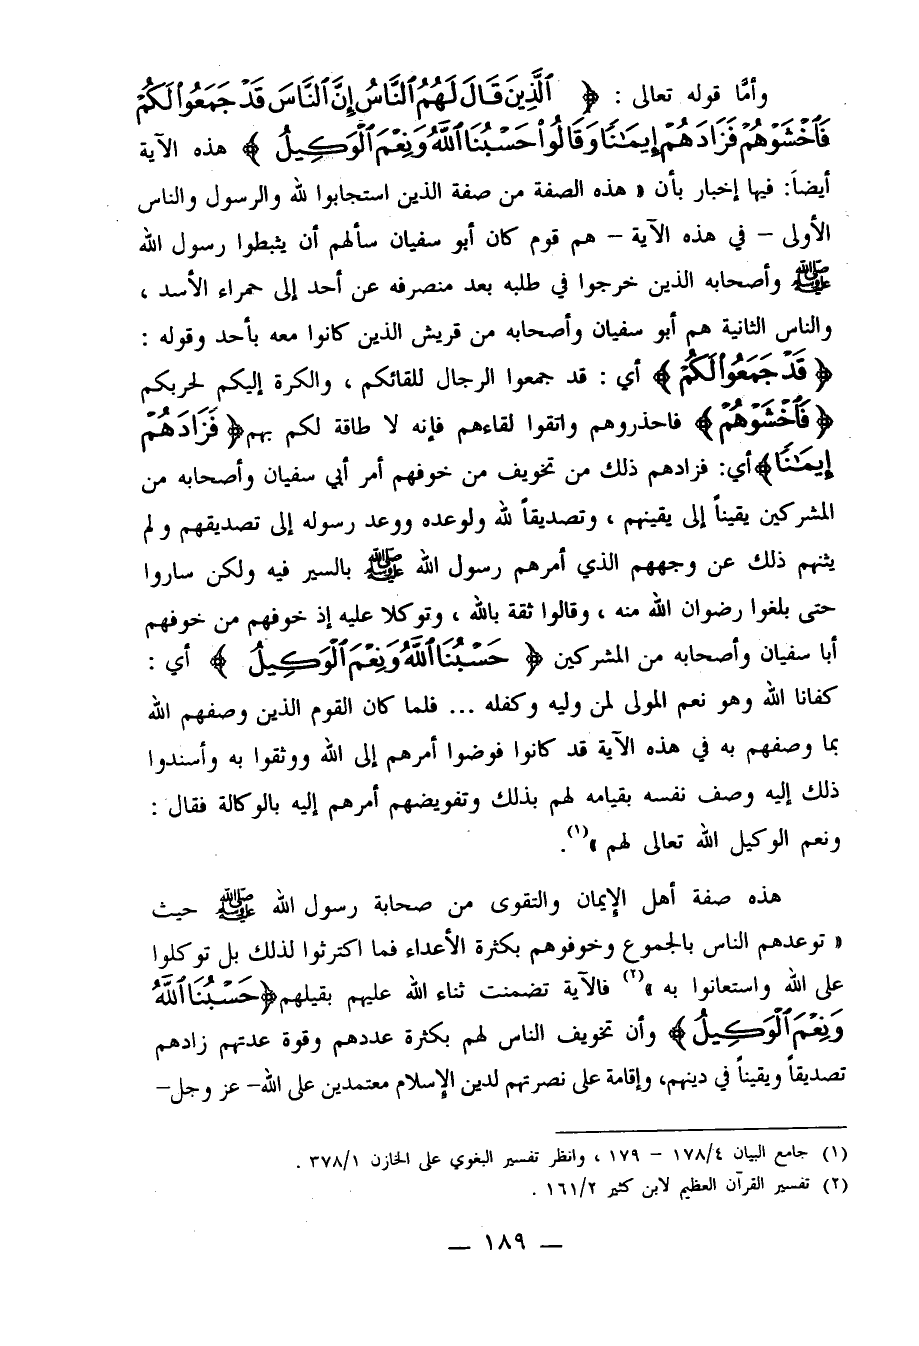 وأمَّا قوله تعالى : ﴿ ٱلَّذِينَ قَالَ لَهُمُ ٱلنَّاسُ إِنَّ ٱلنَّاسَ قَدۡ جَمَعُواْ لَكُمۡ
فَٱخۡشَوۡهُمۡ فَزَادَهُمۡ إِيمَٰنٗا وَقَالُواْ حَسۡبُنَا ٱللَّهُ وَنِعۡمَ ٱلۡوَكِيلُ ﴾ هذه الآية
أيضاً: فيها إخبار بأن « هذه الصفة من صفة الذين استجابوا لله والرسول والناس
الأولى – في هذه الآية – هم قوم كان أبو سفيان سألهم أن يثبطوا رسول الله
ﷺ وأصحابه الذين خرجوا في طلبه بعد منصرفه عن أحد إلى حمراء الأسد ،
والناس الثانية هم أبو سفيان وأصحابه من قريش الذين كانوا معه بأحد وقوله :
﴿ قَدۡ جَمَعُواْ لَكُمۡ ﴾ أي : قد جمعوا الرجال للقائكم ، والكرة إليكم لحربكم
﴿ فَٱخۡشَوۡهُمۡ ﴾ فاحذروهم واتقوا لقاءهم فإنه لا طاقة لكم بهم ﴿ فَزَادَهُمۡ
إِيمَٰنٗا ﴾ أي: فزادهم ذلك من تخويف من خوفهم أمر أبي سفيان وأصحابه من
المشركين يقيناً إلى يقينهم ، وتصديقاً لله ولوعده ووعد رسوله إلى تصديقهم و لم
يثنهم ذلك عن وجههم الذي أمرهم رسول الله ﷺ بالسير فيه ولكن ساروا
حتى بلغوا رضوان الله منه ، وقالوا ثقة بالله ، وتوكلا عليه إذ خوفهم من خوفهم
أبا سفيان وأصحابه من المشركين ﴿ حَسۡبُنَا ٱللَّهُ وَنِعۡمَ ٱلۡوَكِيلُ ﴾ أي :
كفانا الله وهو نعم المولى لمن وليه وكفله ... فلما كان القوم الذين وصفهم الله
بما وصفهم به في هذه الآية قد كانوا فوضوا أمرهم إلى الله ووثقوا به وأسندوا
ذلك إليه وصف نفسه بقيامه لهم بذلك وتفويضهم أمرهم إليه بالوكالة فقال :
ونعم الوكيل الله تعالى لهم »(١).
هذه صفة أهل الإيمان والتقوى من صحابة رسول الله ﷺ حيث
« توعدهم الناس بالجموع وخوفوهم بكثرة الأعداء فما اكترثوا لذلك بل توكلوا
على الله واستعانوا به »(٢) فالآية تضمنت ثناء الله عليهم بقيلهم ﴿ حَسۡبُنَا ٱللَّهُ
وَنِعۡمَ ٱلۡوَكِيلُ ﴾ وأن تخويف الناس لهم بكثرة عددهم وقوة عدتهم زادهم
تصديقاً ويقيناً في دينهم، وإقامة على نصرتهم لدين الإسلام معتمدين على الله– عز وجل–
(١) جامع البيان ١٧٨/٤ – ١٧٩ ، وانظر تفسير البغوي على الخازن ٣٧٨/١ .
(٢) تفسير القرآن العظيم لابن كثير ١٦١/٢ .
— ١٨٩ —